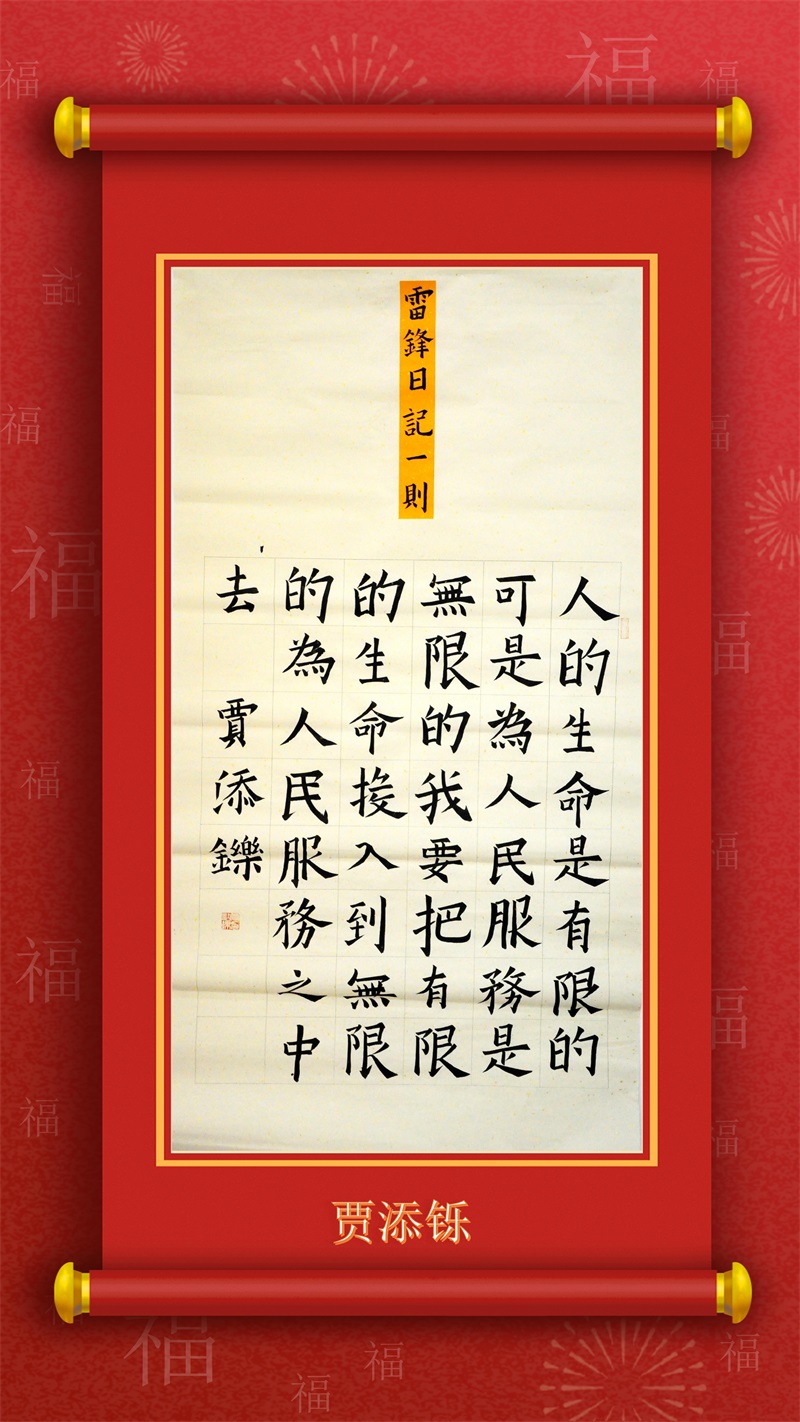 雷鋒日記一則
人的生命是有限的
可是為人民服務是
無限的我要把有限
的生命投入到無限
的為人民服務之中
去 賈添鑠
贾添铄